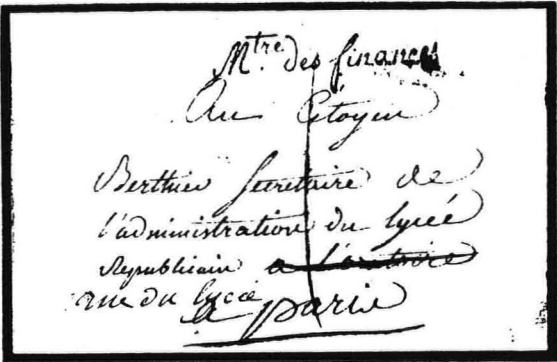 Mtre des finances
Au Citoyen
Berthier Secretaire de
l'administration du lycée
Republicain a l'oratoire
rue du lycée
a paris